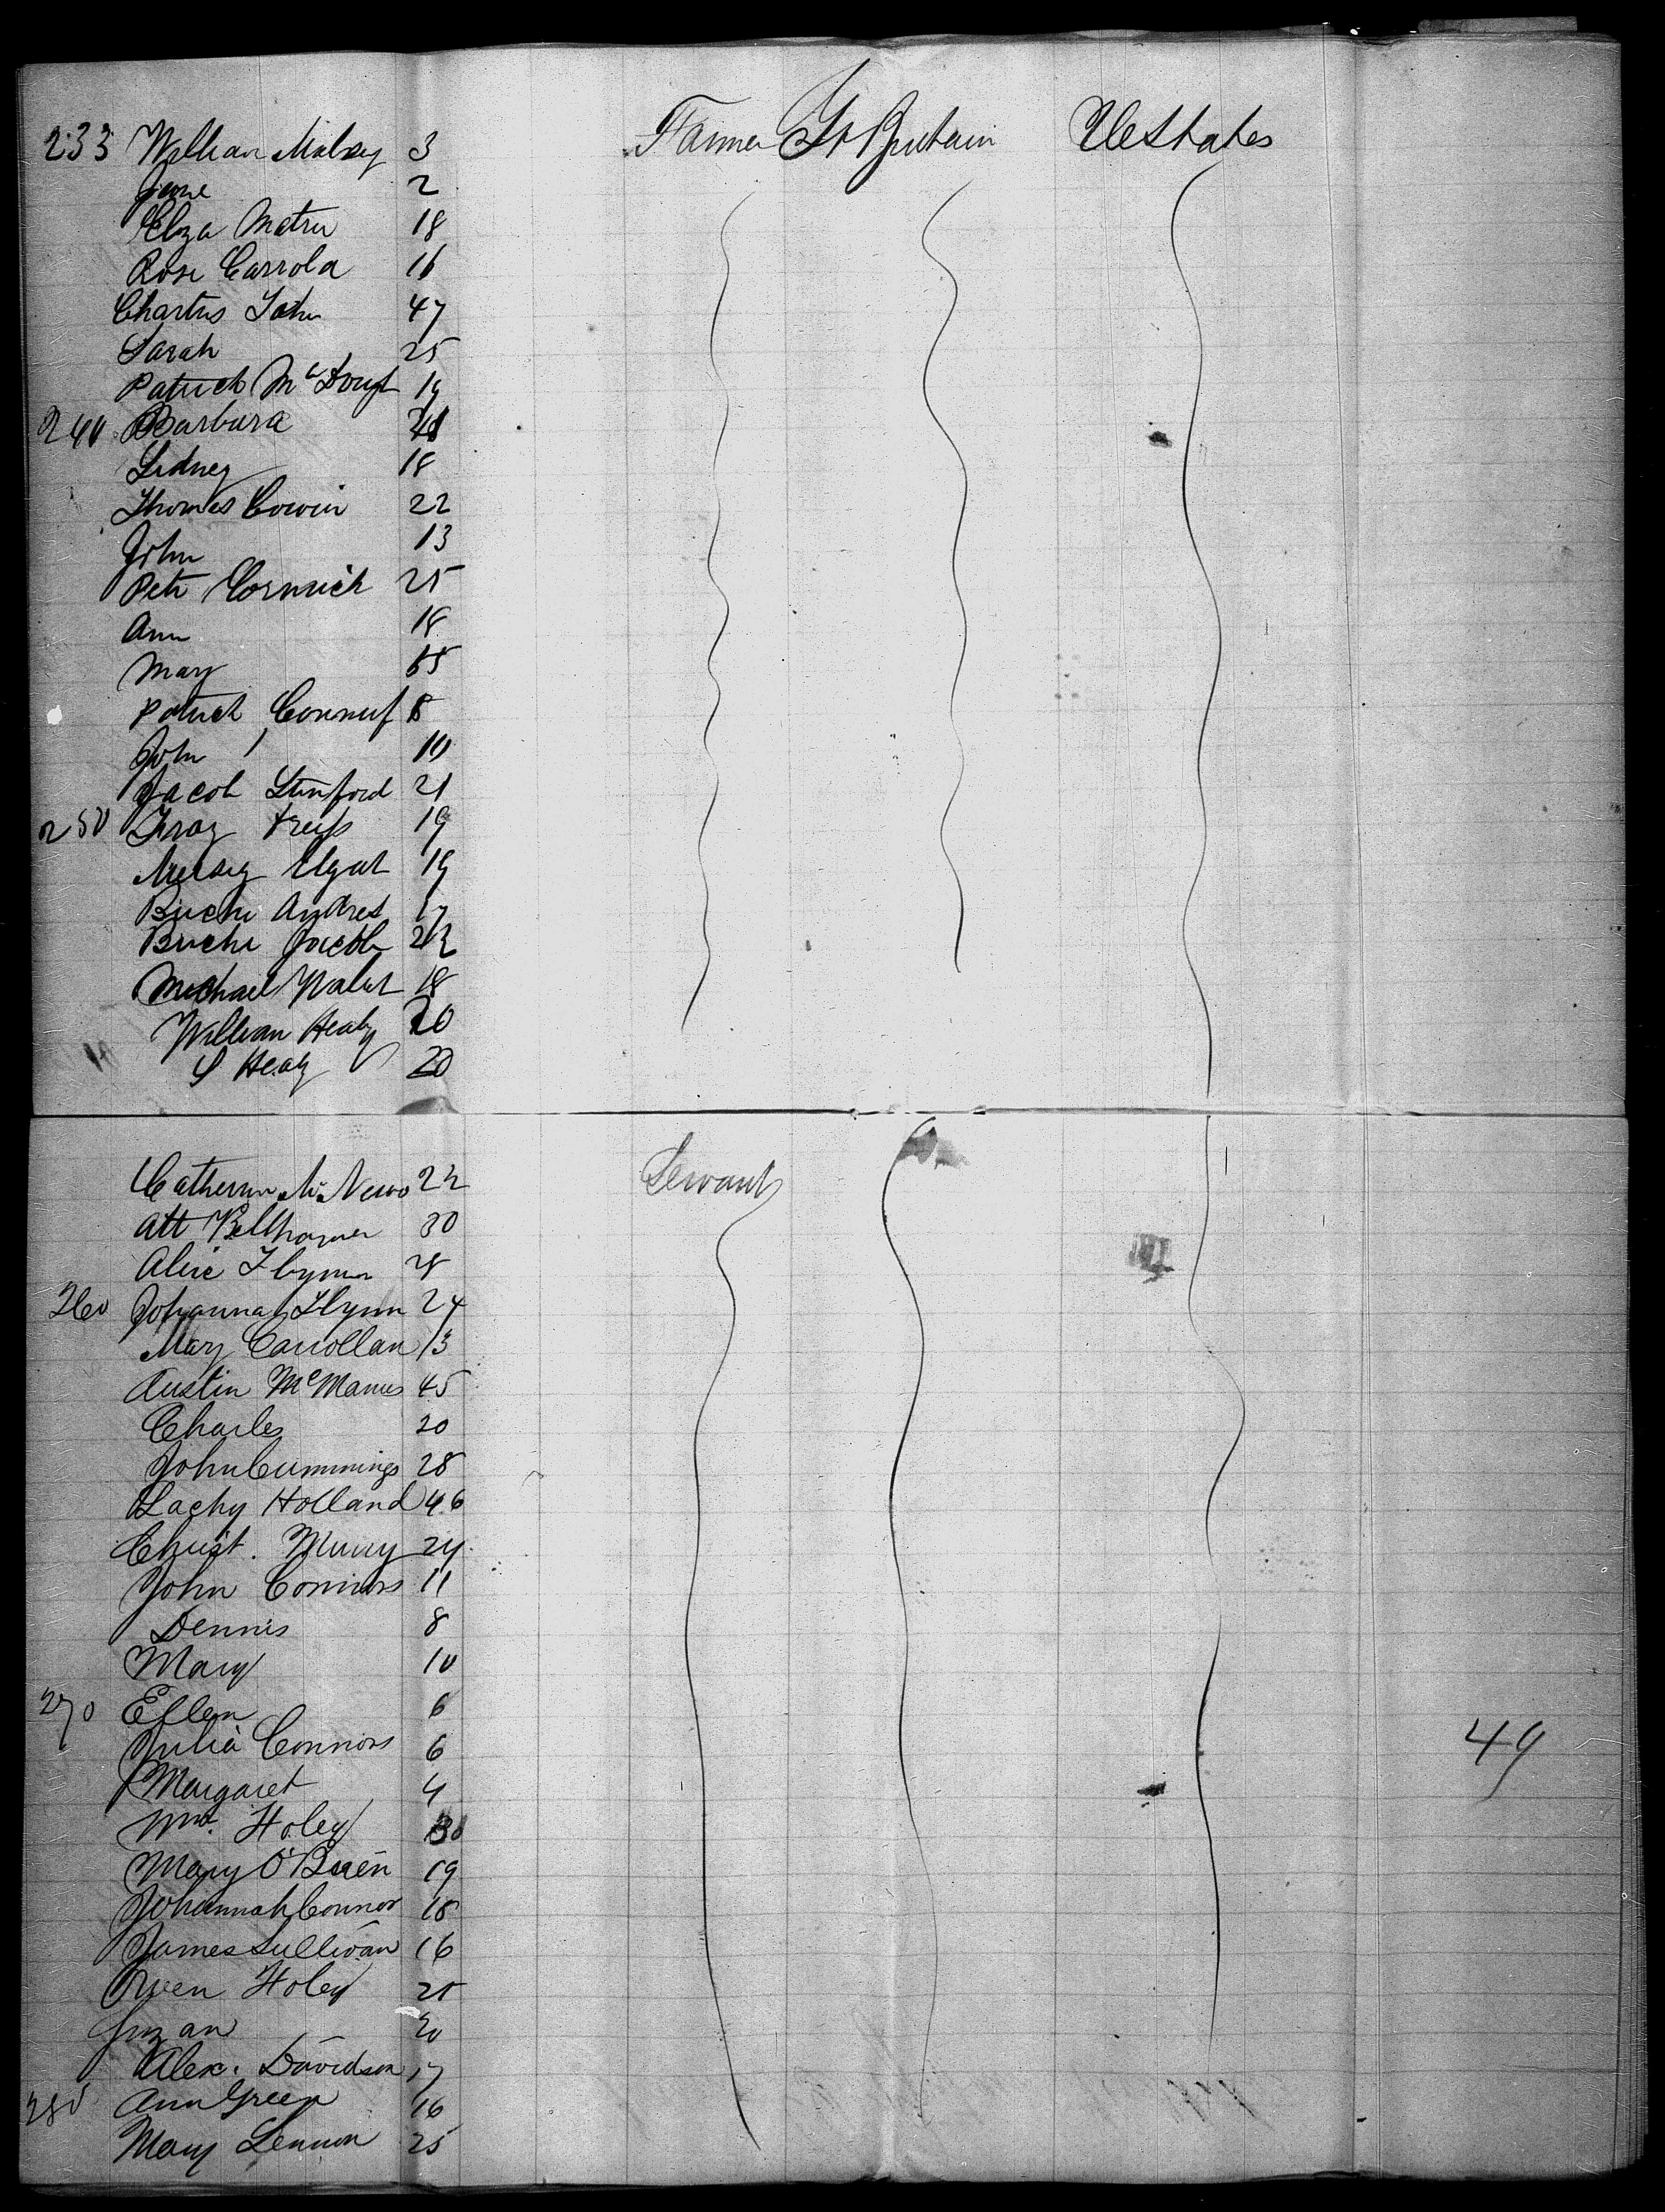 233 William Malsey 3 Farmer Gt Britain U States
Jane 2
Eliza 18
Rose Carrola 16
Chartus John 47
Sarah 25
Patrick 19
240 Barbara
Sidney 18
Thomas Cowin 22
John 13
Petr Cormick 25
Ann 18
Mary 55
Patrick 8
John 10
Jacob Stinford 21
250 19
19
Buchi Andres 17
Buchi Jacob 22
Michael Walsh 18
William Healy 20
S Healy 20
22 Servants
Att 30
Alice Flynn 28
260 Johanna Flynn 24
Mary Carrollan 13
Austin McManus 45
Charles 20
John Cummings 28
Lachy Holland 46
Christ. Murry 24
John Connors 11
Dennis 8
Mary 10
270 Ellen 6
Julia Connors 6 49
Margaret 4
Holey 30
Mary O'Brien 19
Johannah Connor 18
James Sullivan 16
Owen Holey 25
Suzan 20
Alex. Davidson 17
280 Ann Green 16
Mary Lennon 25